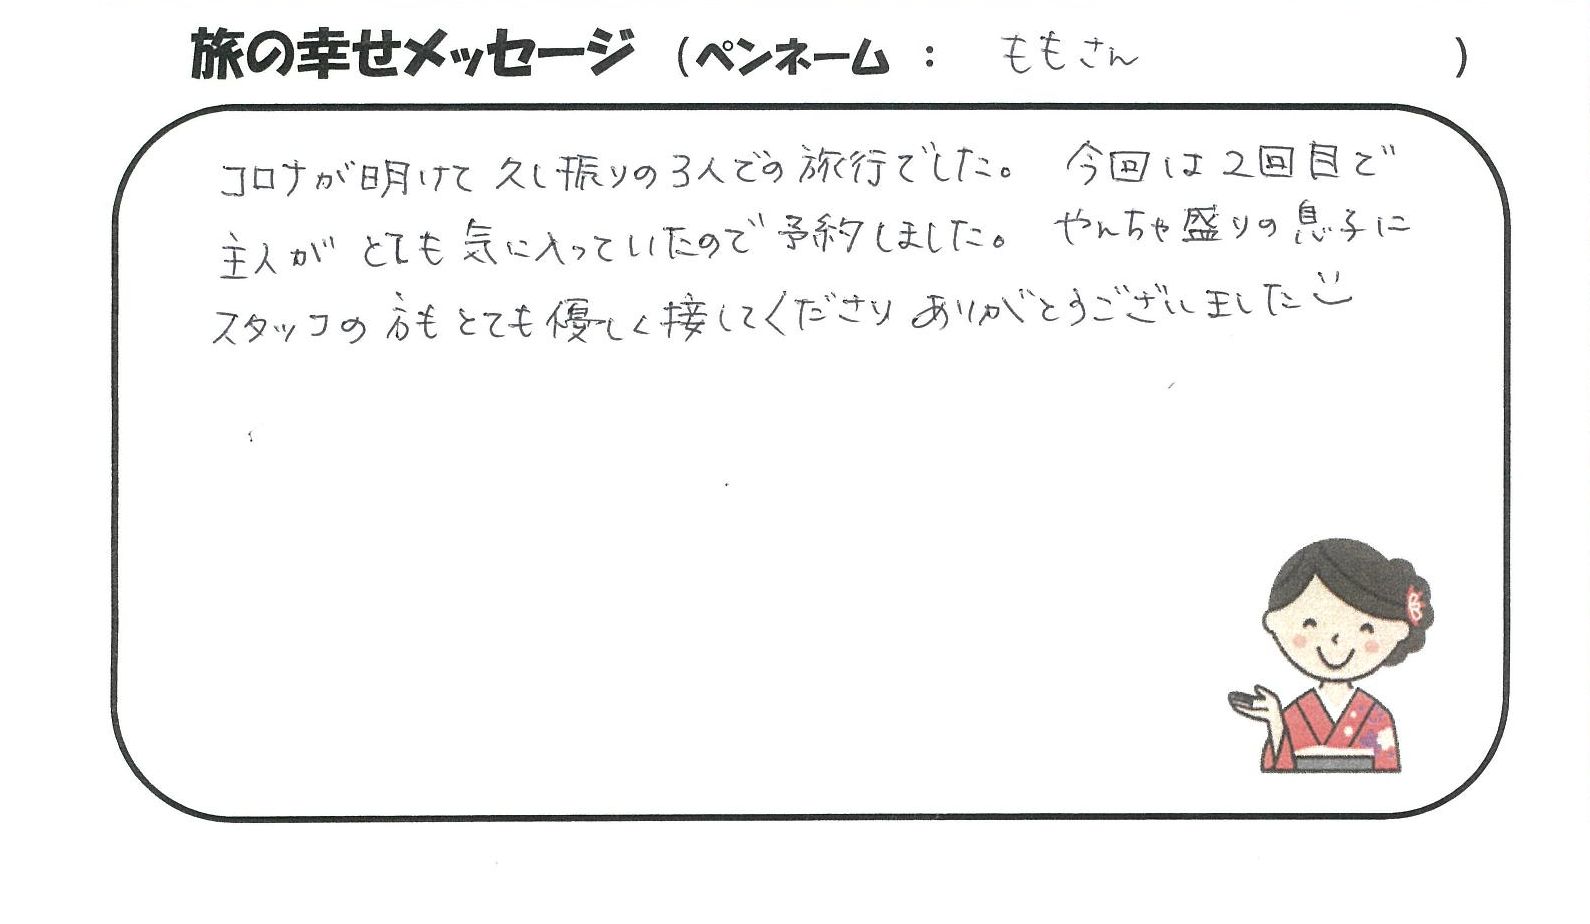 旅の幸せメッセージ (ペンネーム : ももさん )
コロナが明けて 久し振りの3人での旅行でした。 今回は2回目で
主人が とても気に入っていたので予約しました。 やんちゃ盛りの息子に
スタッフの方もとても優しく接してくださり ありがとうございました